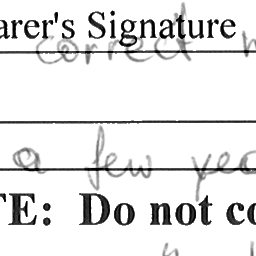 arer's Signature
correct
a few yea
TE: Do not co